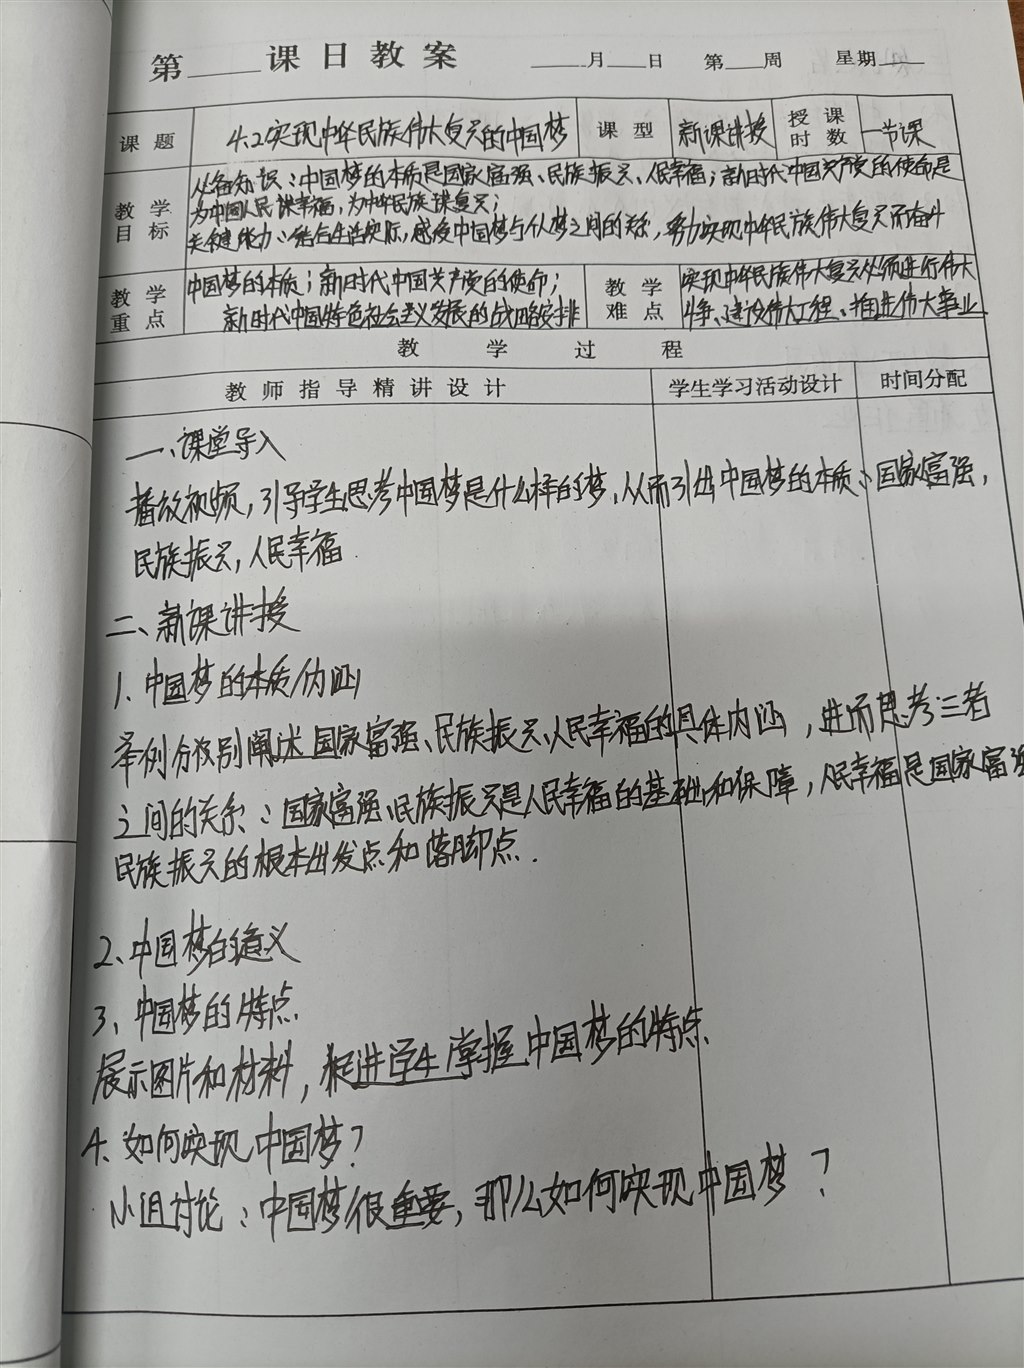 第____课日教案 ____月____日 第____周 星期____
课题 4.2实现中华民族伟大复兴的中国梦 课型 新课讲授 授课时数 一节课
教学目标 必备知识：中国梦的本质是国家富强、民族振兴、人民幸福；新时代中国共产党的使命是
为中国人民谋幸福，为中华民族谋复兴；
关键能力：结合生活实际，感受中国梦与个人梦之间的关系，努力实现中华民族伟大复兴而奋斗
教学重点 中国梦的本质；新时代中国共产党的使命；
新时代中国特色社会主义发展的战略安排
教学难点 实现中华民族伟大复兴必须进行伟大
斗争、建设伟大工程、推进伟大事业
教学过程
教师指导精讲设计 学生学习活动设计 时间分配
一、课堂导入
播放视频，引导学生思考中国梦是什么样的梦，从而引出中国梦的本质：国家富强，
民族振兴，人民幸福
二、新课讲授
1、中国梦的本质/内涵
举例分别阐述国家富强、民族振兴、人民幸福的具体内涵，进而思考三者
之间的关系：国家富强、民族振兴是人民幸福的基础和保障，人民幸福是国家富强
民族振兴的根本出发点和落脚点.
2、中国梦的意义
3、中国梦的特点.
展示图片和材料，促进学生掌握中国梦的特点.
4、如何实现中国梦？
小组讨论：中国梦很重要，那么如何实现中国梦？